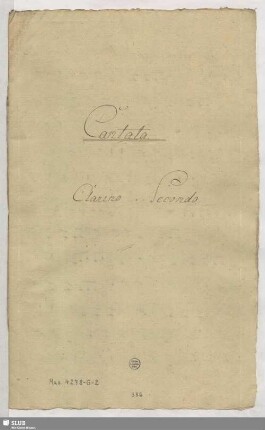 Cantata
Clarino Secondo
Mus. 4298-G-2
SLUB